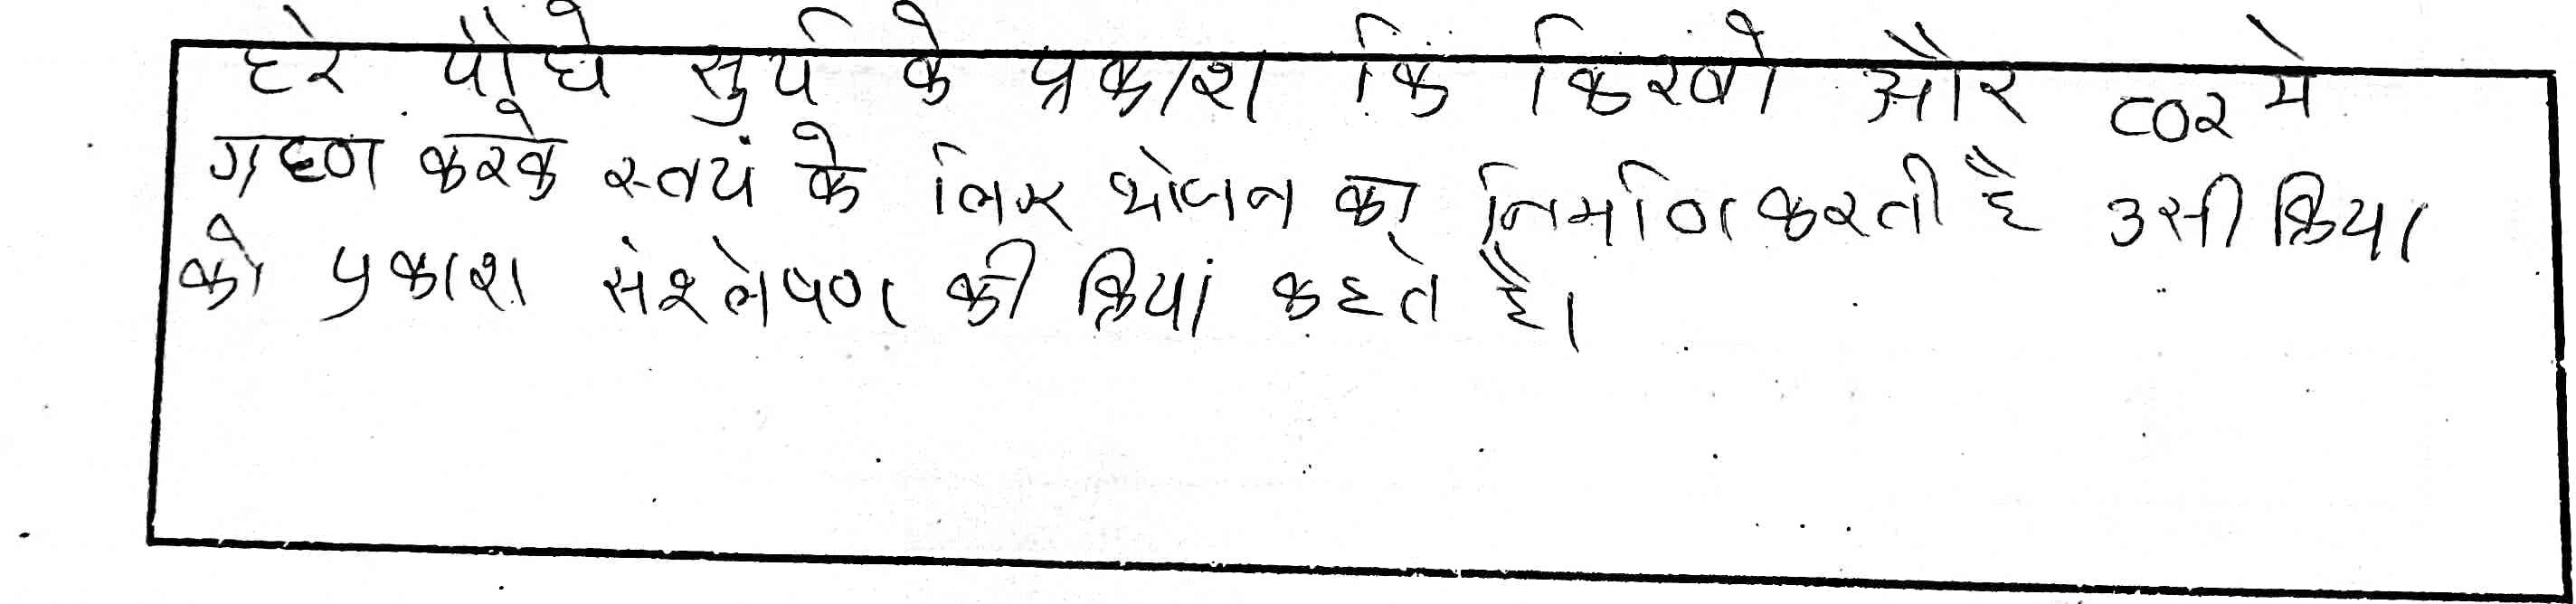 हरे पौधे सुर्य के प्रकाश कि किरणो और CO2 मे
ग्रहण करके स्वयं के लिए भोजन का निर्माण करती है उसी क्रिया
को प्रकाश संश्लेषण की क्रियां कहते है।